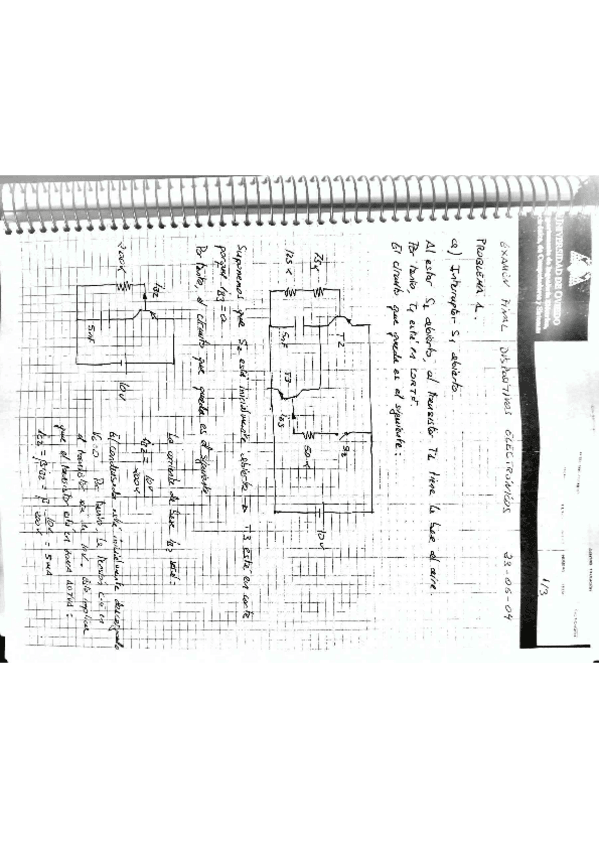 UNIVERSIDAD DE OVIEDO
1/3
EXAMEN FINAL DISPOSITIVOS ELECTRONICOS 23-06-04
PROBLEMA 1.
a) Interruptor S1 abierto.
Al estar S1 abierto, el transistor T1 tiene la base al aire.
Por tanto, T1 está en CORTE.
El circuito que queda es el siguiente:
75K
125K
T2
5nF
T3
iB3
50K
S2
10V
Suponemos que S2 está inicialmente abierto → T3 está en corte
porque iB3=0
Por tanto, el circuito que queda es el siguiente
200K
iB2
5nF
10V
La corriente de base iB2 será:
iB2 = 10V / 200K
El condensador está inicialmente descargado
Por tanto, la tensión
el transistor es 10V. Esto implica
que el transistor está en zona ACTIVA:
10V / 200K = 5mA